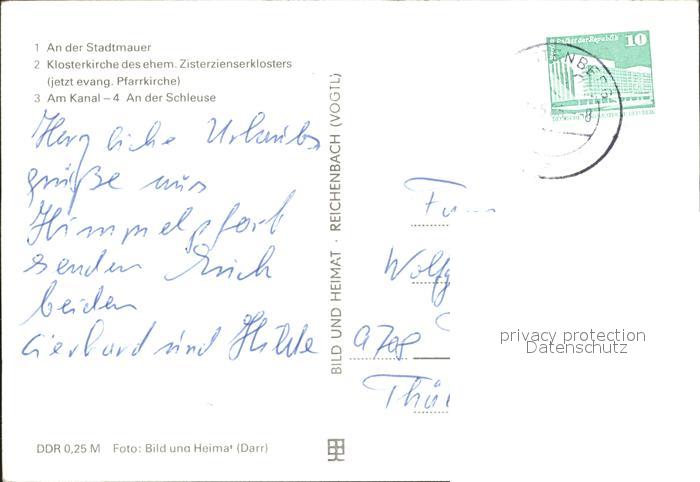 1 An der Stadtmauer
2 Klosterkirche des ehem. Zisterzienserklosters
(jetzt evang. Pfarrkirche)
3 Am Kanal – 4 An der Schleuse
Herzliche Urlaubs
grüße aus
Himmelpfort
senden Euch
beiden
Gerhard und Hilde
BILD UND HEIMAT · REICHENBACH (VOGTL)
Palast der Republik 10
Wolfg
Thü
privacy protection
Datenschutz
DDR 0,25 M Foto: Bild und Heimat (Darr)